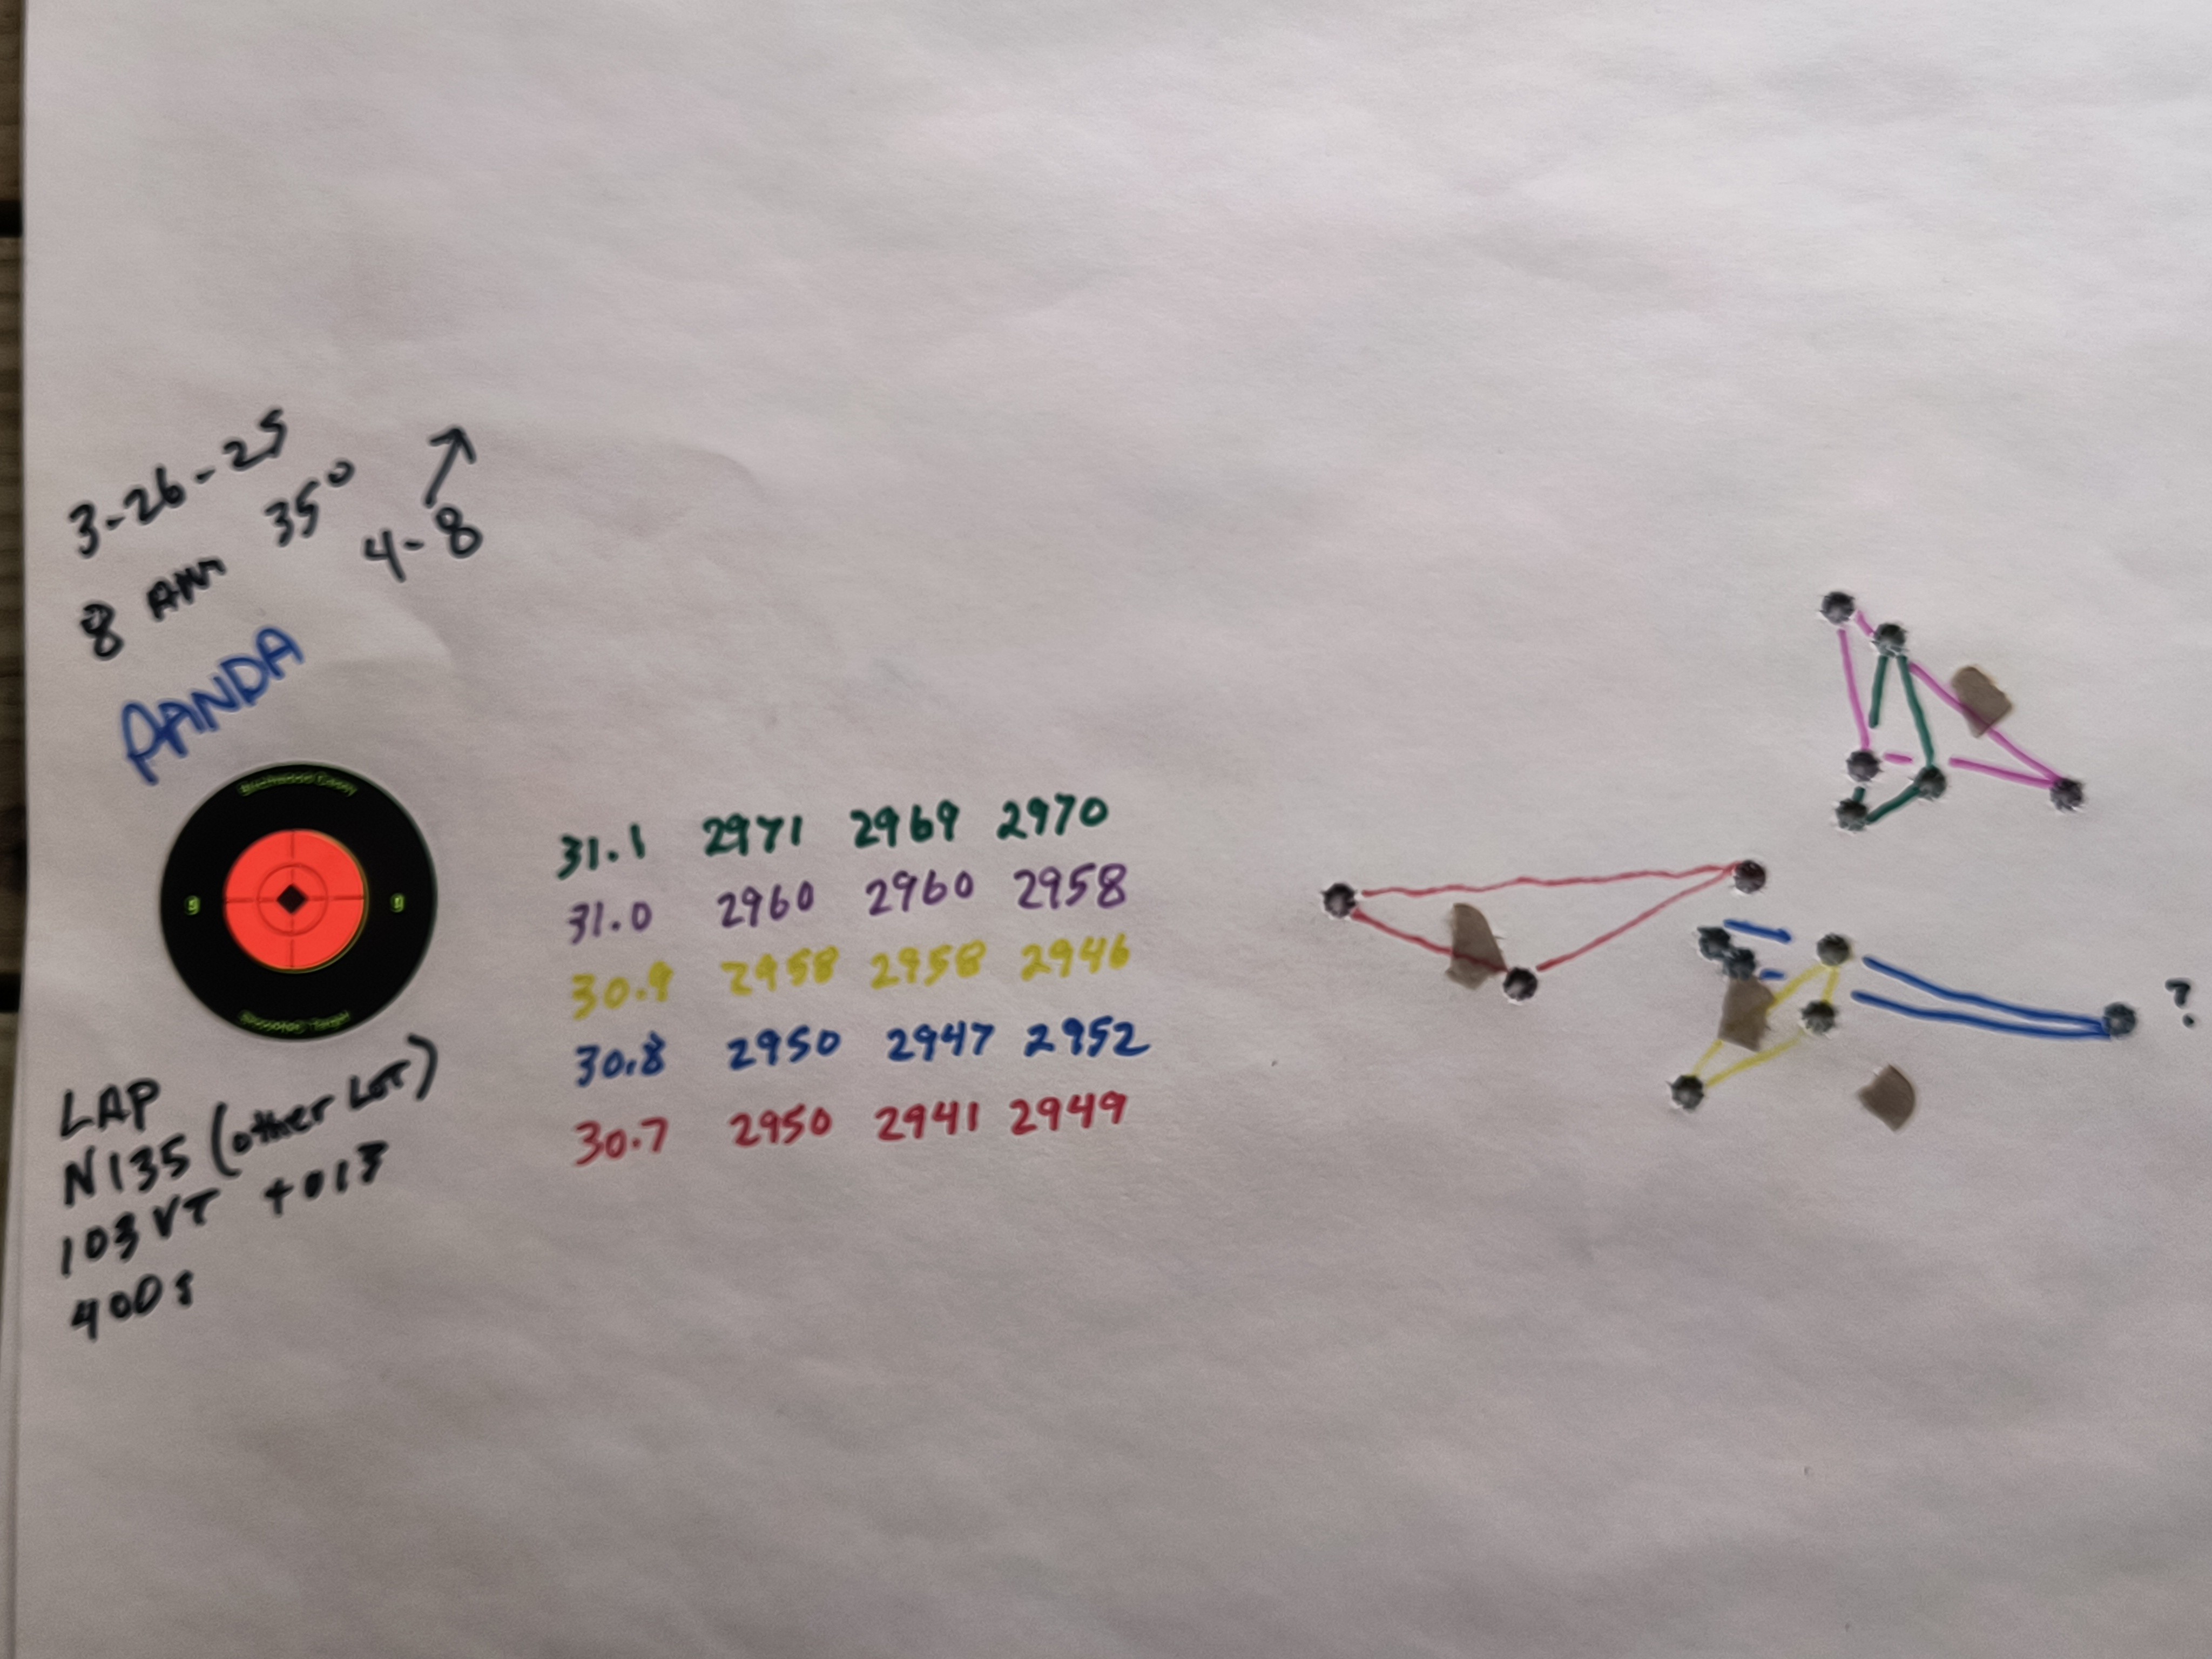 3-26-25
8 AM 35°
4-8
PANDA
Birchwood Casey
8 8
Shoot•N•C Target
31.1 2971 2969 2970
31.0 2960 2960 2958
30.9 2958 2958 2946
30.8 2950 2947 2952
30.7 2950 2941 2949
?
LAP
N135 (other LOT)
103 VT +013
400s